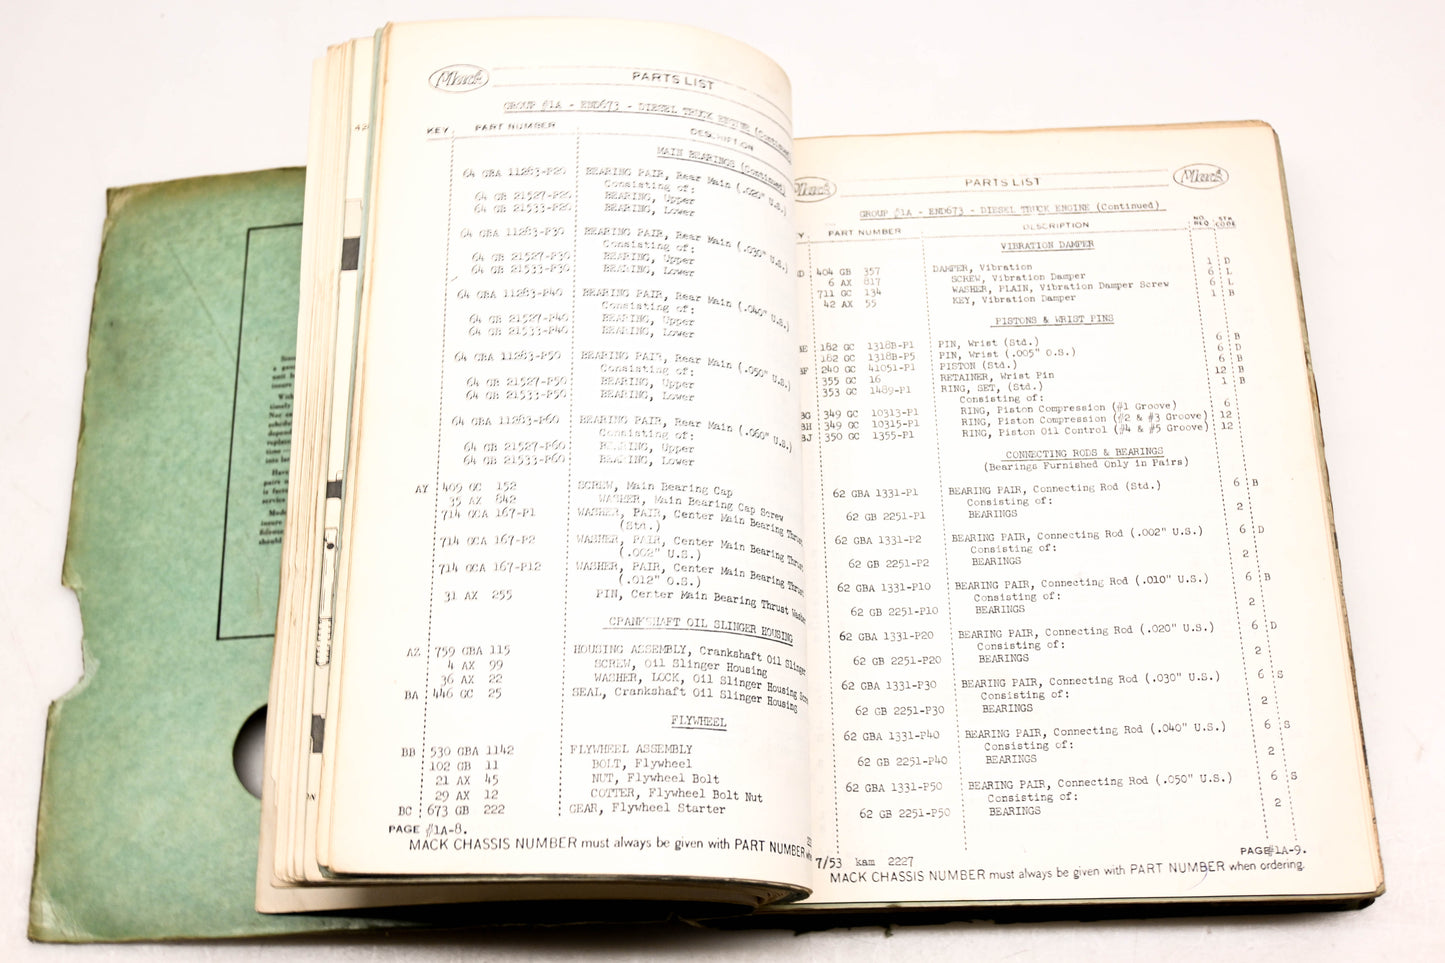 Mack
PARTS LIST
GROUP #1A - END673 - DIESEL TRUCK ENGINE (Continued)
KEY PART NUMBER DESCRIPTION
MAIN BEARINGS (Continued)
64 GBA 11283-P20 BEARING PAIR, Rear Main (.020" U.S.)
Consisting of:
64 GB 21527-P20 BEARING, Upper
64 GB 21533-P20 BEARING, Lower
64 GBA 11283-P30 BEARING PAIR, Rear Main (.030" U.S.)
Consisting of:
64 GB 21527-P30 BEARING, Upper
64 GB 21533-P30 BEARING, Lower
64 GBA 11283-P40 BEARING PAIR, Rear Main (.040" U.S.)
Consisting of:
64 GB 21527-P40 BEARING, Upper
64 GB 21533-P40 BEARING, Lower
64 GBA 11283-P50 BEARING PAIR, Rear Main (.050" U.S.)
Consisting of:
64 GB 21527-P50 BEARING, Upper
64 GB 21533-P50 BEARING, Lower
64 GBA 11283-P60 BEARING PAIR, Rear Main (.060" U.S.)
Consisting of:
64 GB 21527-P60 BEARING, Upper
64 GB 21533-P60 BEARING, Lower
AY 409 GC 152 SCREW, Main Bearing Cap
35 AX 842 WASHER, Main Bearing Cap Screw
714 GCA 167-P1 WASHER, PAIR, Center Main Bearing Thrust
(Std.)
714 GCA 167-P2 WASHER, PAIR, Center Main Bearing Thrust
(.002" U.S.)
714 GCA 167-P12 WASHER, PAIR, Center Main Bearing Thrust
(.012" O.S.)
31 AX 255 PIN, Center Main Bearing Thrust Washer
CRANKSHAFT OIL SLINGER HOUSING
AZ 759 GBA 115 HOUSING ASSEMBLY, Crankshaft Oil Slinger
4 AX 99 SCREW, Oil Slinger Housing
36 AX 22 WASHER, LOCK, Oil Slinger Housing Screw
BA 446 GC 25 SEAL, Crankshaft Oil Slinger Housing
FLYWHEEL
BB 530 GBA 1142 FLYWHEEL ASSEMBLY
102 GB 11 BOLT, Flywheel
21 AX 45 NUT, Flywheel Bolt
29 AX 12 COTTER, Flywheel Bolt Nut
BC 673 GB 222 GEAR, Flywheel Starter
PAGE #1A-8.
MACK CHASSIS NUMBER must always be given with PART NUMBER
Mack PARTS LIST Mack
GROUP #1A - END673 - DIESEL TRUCK ENGINE (Continued)
Y. PART NUMBER DESCRIPTION NO. REQ. STK CODE
VIBRATION DAMPER
D 404 GB 357 DAMPER, Vibration 1 D
6 AX 817 SCREW, Vibration Damper 6 L
711 GC 134 WASHER, PLAIN, Vibration Damper Screw 6 L
42 AX 55 KEY, Vibration Damper 1 B
PISTONS & WRIST PINS
BE 182 GC 1318B-P1 PIN, Wrist (Std.) 6 B
182 GC 1318B-P5 PIN, Wrist (.005" O.S.) 6 D
BF 240 GC 41051-P1 PISTON (Std.) 6 B
355 GC 16 RETAINER, Wrist Pin 12 B
353 GC 1489-P1 RING, SET, (Std.) 1 B
Consisting of:
BG 349 GC 10313-P1 RING, Piston Compression (#1 Groove) 6
BH 349 GC 10315-P1 RING, Piston Compression (#2 & #3 Groove) 12
BJ 350 GC 1355-P1 RING, Piston Oil Control (#4 & #5 Groove) 12
CONNECTING RODS & BEARINGS
(Bearings Furnished Only in Pairs)
62 GBA 1331-P1 BEARING PAIR, Connecting Rod (Std.) 6 B
Consisting of:
62 GB 2251-P1 BEARINGS 2
62 GBA 1331-P2 BEARING PAIR, Connecting Rod (.002" U.S.) 6 D
Consisting of:
62 GB 2251-P2 BEARINGS 2
62 GBA 1331-P10 BEARING PAIR, Connecting Rod (.010" U.S.) 6 B
Consisting of:
62 GB 2251-P10 BEARINGS 2
62 GBA 1331-P20 BEARING PAIR, Connecting Rod (.020" U.S.) 6 D
Consisting of:
62 GB 2251-P20 BEARINGS 2
62 GBA 1331-P30 BEARING PAIR, Connecting Rod (.030" U.S.) 6 S
Consisting of:
62 GB 2251-P30 BEARINGS 2
62 GBA 1331-P40 BEARING PAIR, Connecting Rod (.040" U.S.) 6 S
Consisting of:
62 GB 2251-P40 BEARINGS 2
62 GBA 1331-P50 BEARING PAIR, Connecting Rod (.050" U.S.) 6 S
Consisting of:
62 GB 2251-P50 BEARINGS 2
7/53 kam 2227 PAGE #1A-9.
MACK CHASSIS NUMBER must always be given with PART NUMBER when ordering.